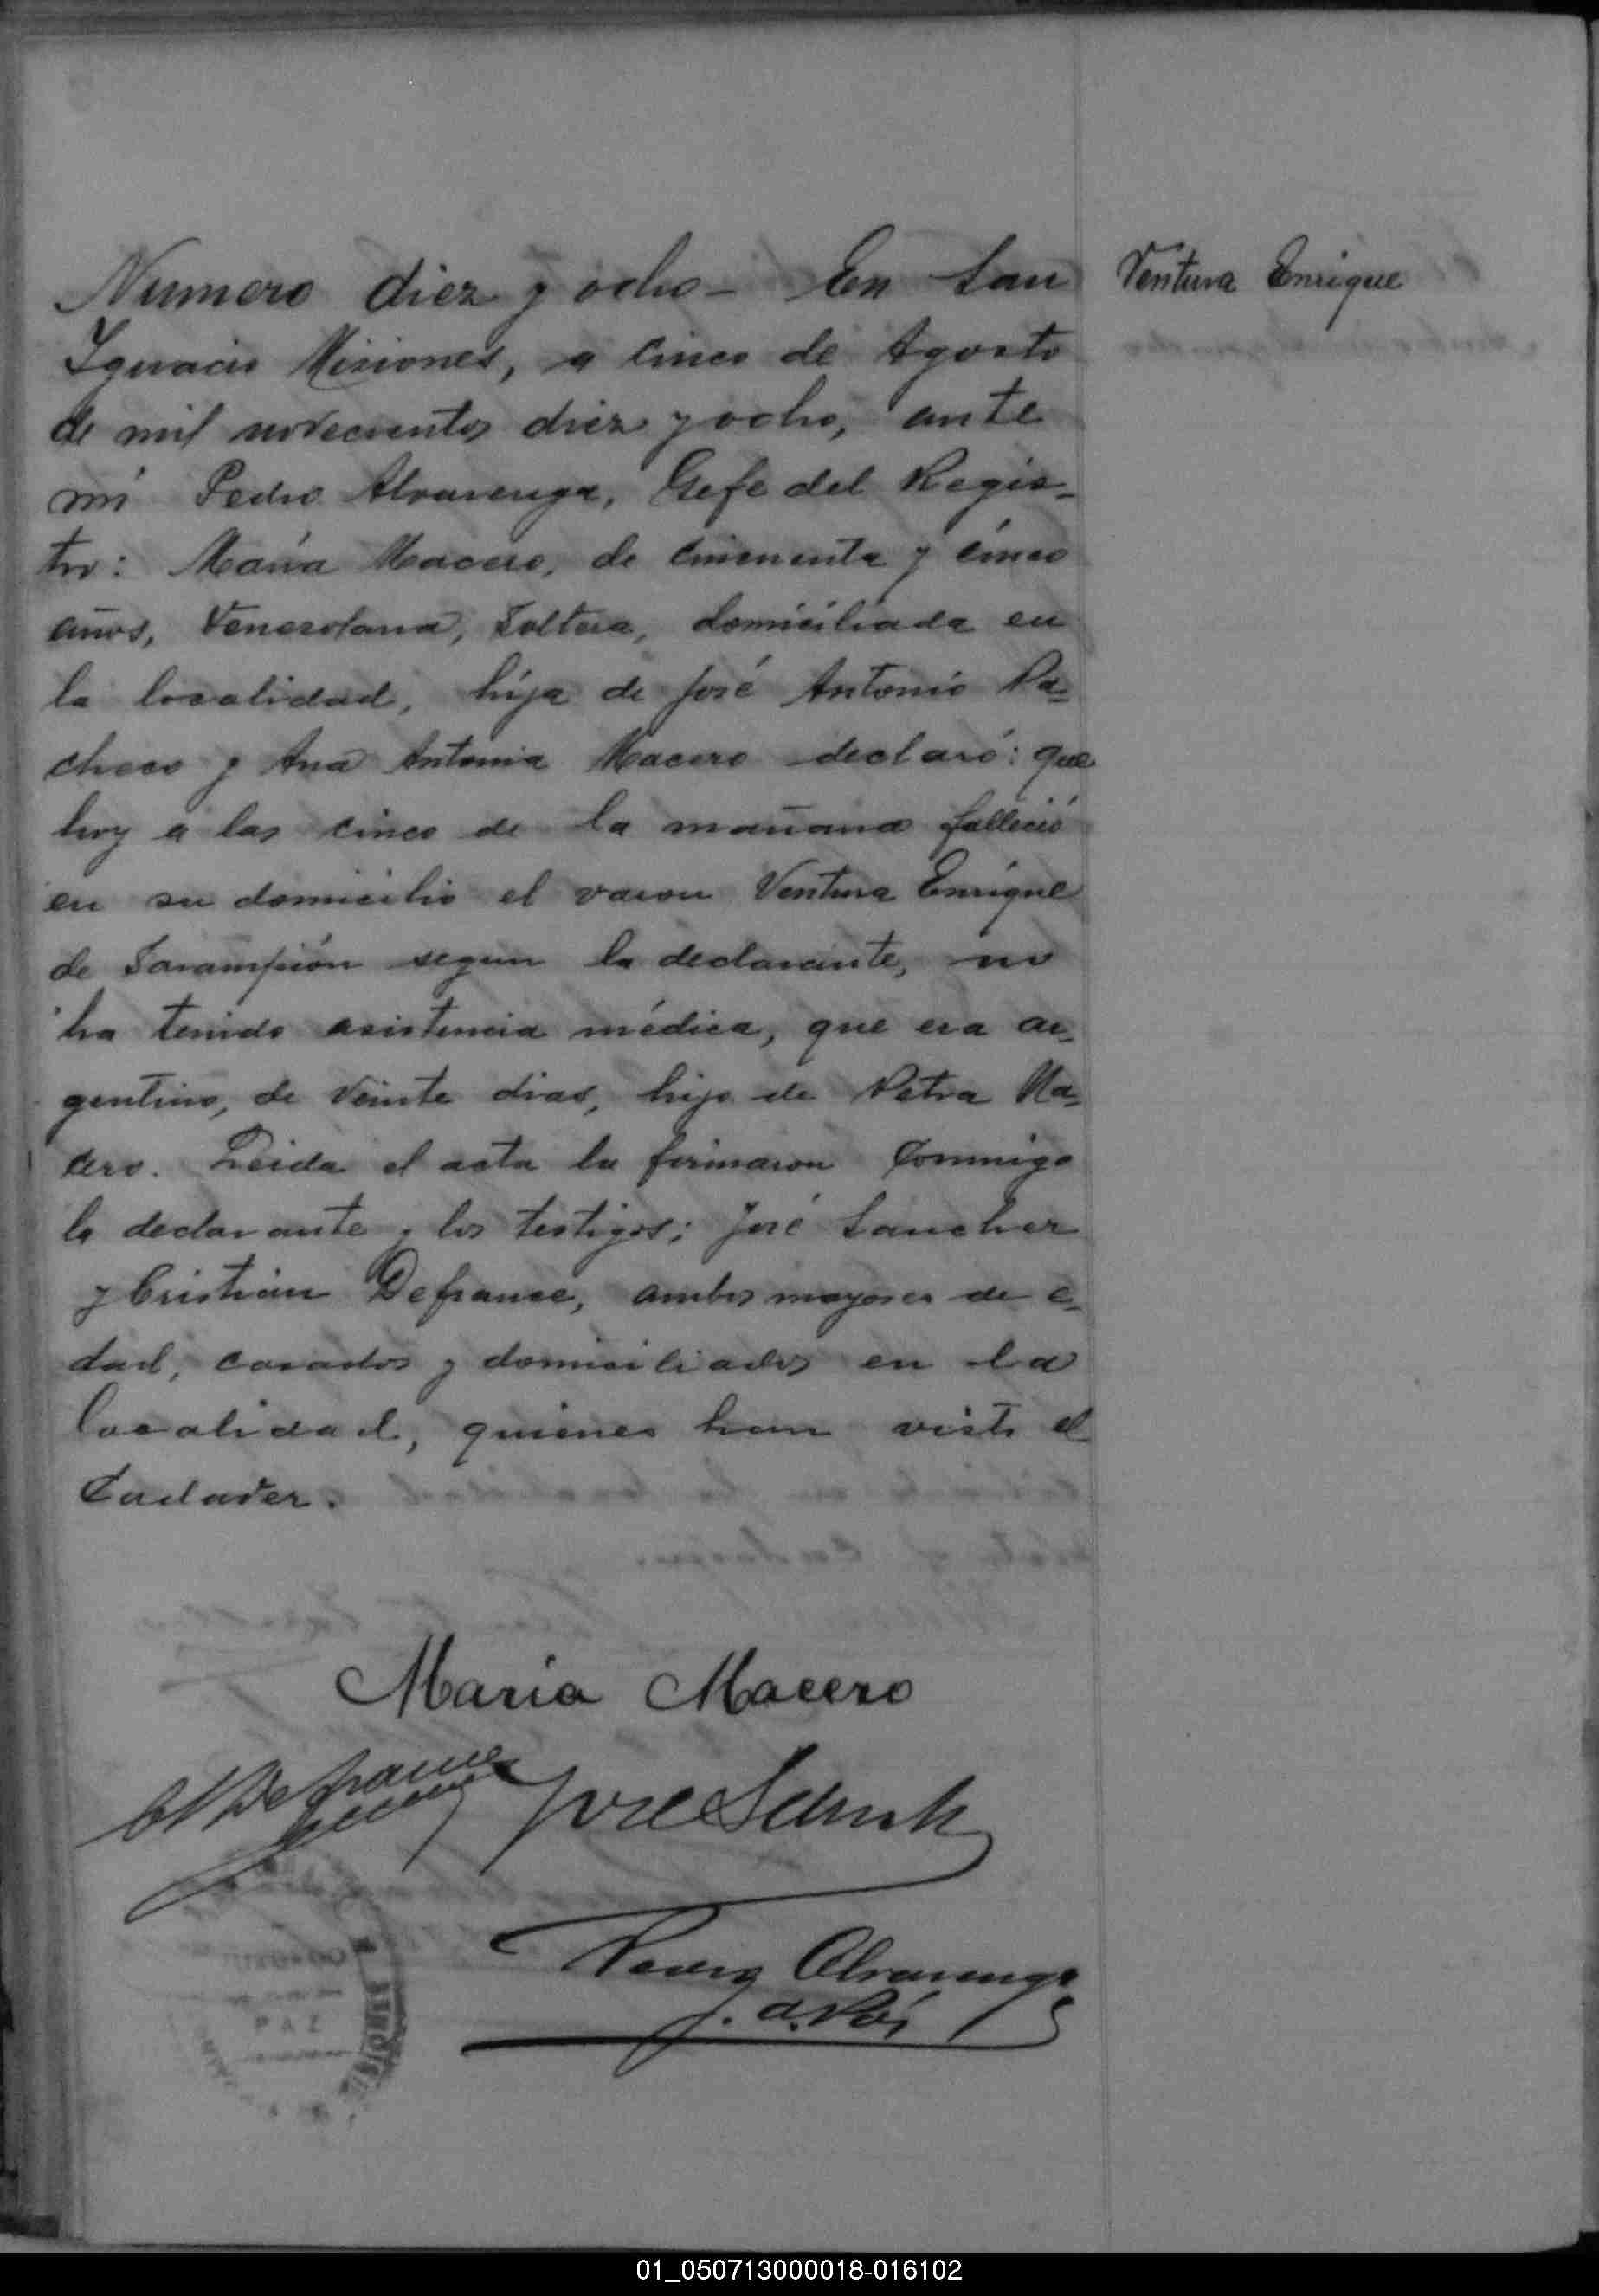 Ventura Enrique
Numero diez y ocho - En San
Ignacio Misiones, a cinco de Agosto
de mil novecientos diez y ocho, ante
mi Pedro Alvarenga, Gefe del Regis-
tro: María Macero, de cincuenta y cinco
años, Venezolana, Soltera, domiciliada en
la localidad, hija de José Antonio Pa-
checo y Ana Antonia Macero declaró: que
hoy a las cinco de la mañana falleció
en su domicilio el varon Ventura Enrique
de Sarampión segun la declarante, no
ha tenido asistencia médica, que era ar-
gentino, de Veinte dias, hijo de Petra Ma-
cero. Leida el acta la firmaron Conmigo
la declarante y los testigos; José Sanchez
y Cristian Defrance, ambos mayores de e-
dad, casados y domiciliados en la
localidad, quienes han visto el
Cadaver.
María Macero
Defrance José
Pedro Alvarenga
01_050713000018-016102